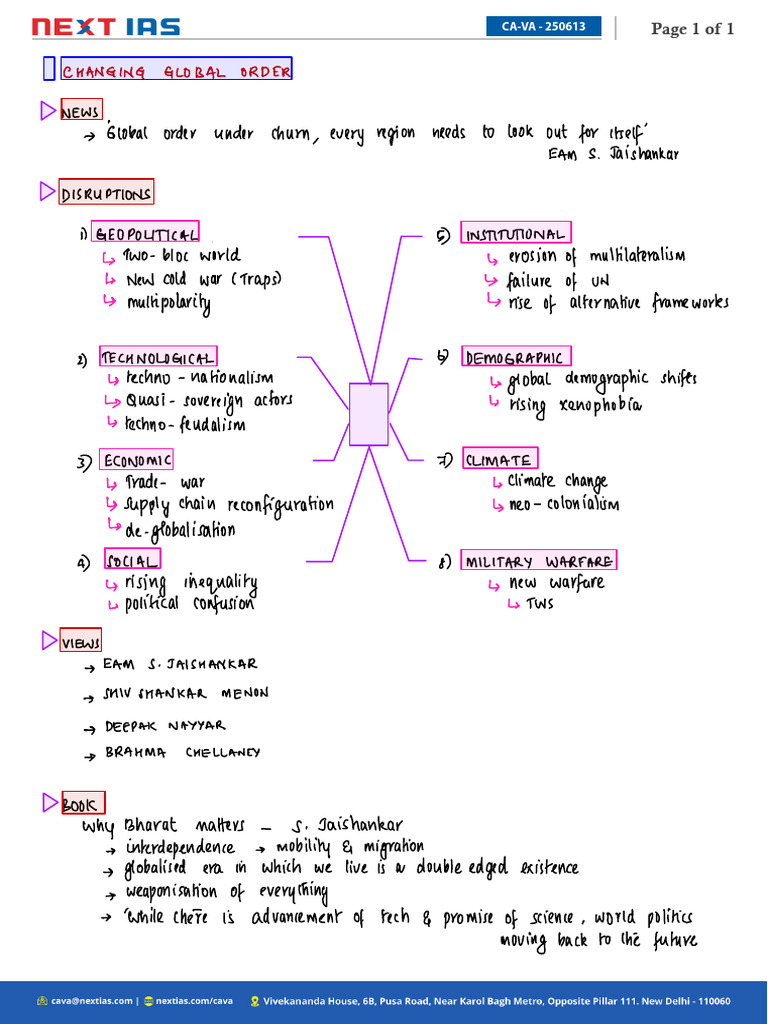 NEXT IAS
CA-VA - 250613
Page 1 of 1
CHANGING GLOBAL ORDER
NEWS
→ 'Global order under churn, every region needs to look out for itself'
EAM S. Jaishankar
DISRUPTIONS
1) GEOPOLITICAL
Two-bloc world
New cold war (Traps)
multipolarity
2) TECHNOLOGICAL
techno-nationalism
Quasi-sovereign actors
techno-feudalism
3) ECONOMIC
Trade-war
supply chain reconfiguration
de-globalisation
4) SOCIAL
rising inequality
political confusion
5) INSTITUTIONAL
erosion of multilateralism
failure of UN
rise of alternative frameworks
6) DEMOGRAPHIC
global demographic shifts
rising xenophobia
7) CLIMATE
climate change
neo-colonialism
8) MILITARY WARFARE
new warfare
TWS
VIEWS
→ EAM S. JAISHANKAR
→ SHIV SHANKAR MENON
→ DEEPAK NAYYAR
→ BRAHMA CHELLANEY
BOOK
Why Bharat matters - S. Jaishankar
→ interdependence → mobility & migration
→ globalised era in which we live is a double edged existence
→ weaponisation of everything
→ 'While there is advancement of tech & promise of science, world politics
moving back to the future
cava@nextias.com | nextias.com/cava Vivekananda House, 6B, Pusa Road, Near Karol Bagh Metro, Opposite Pillar 111. New Delhi - 110060